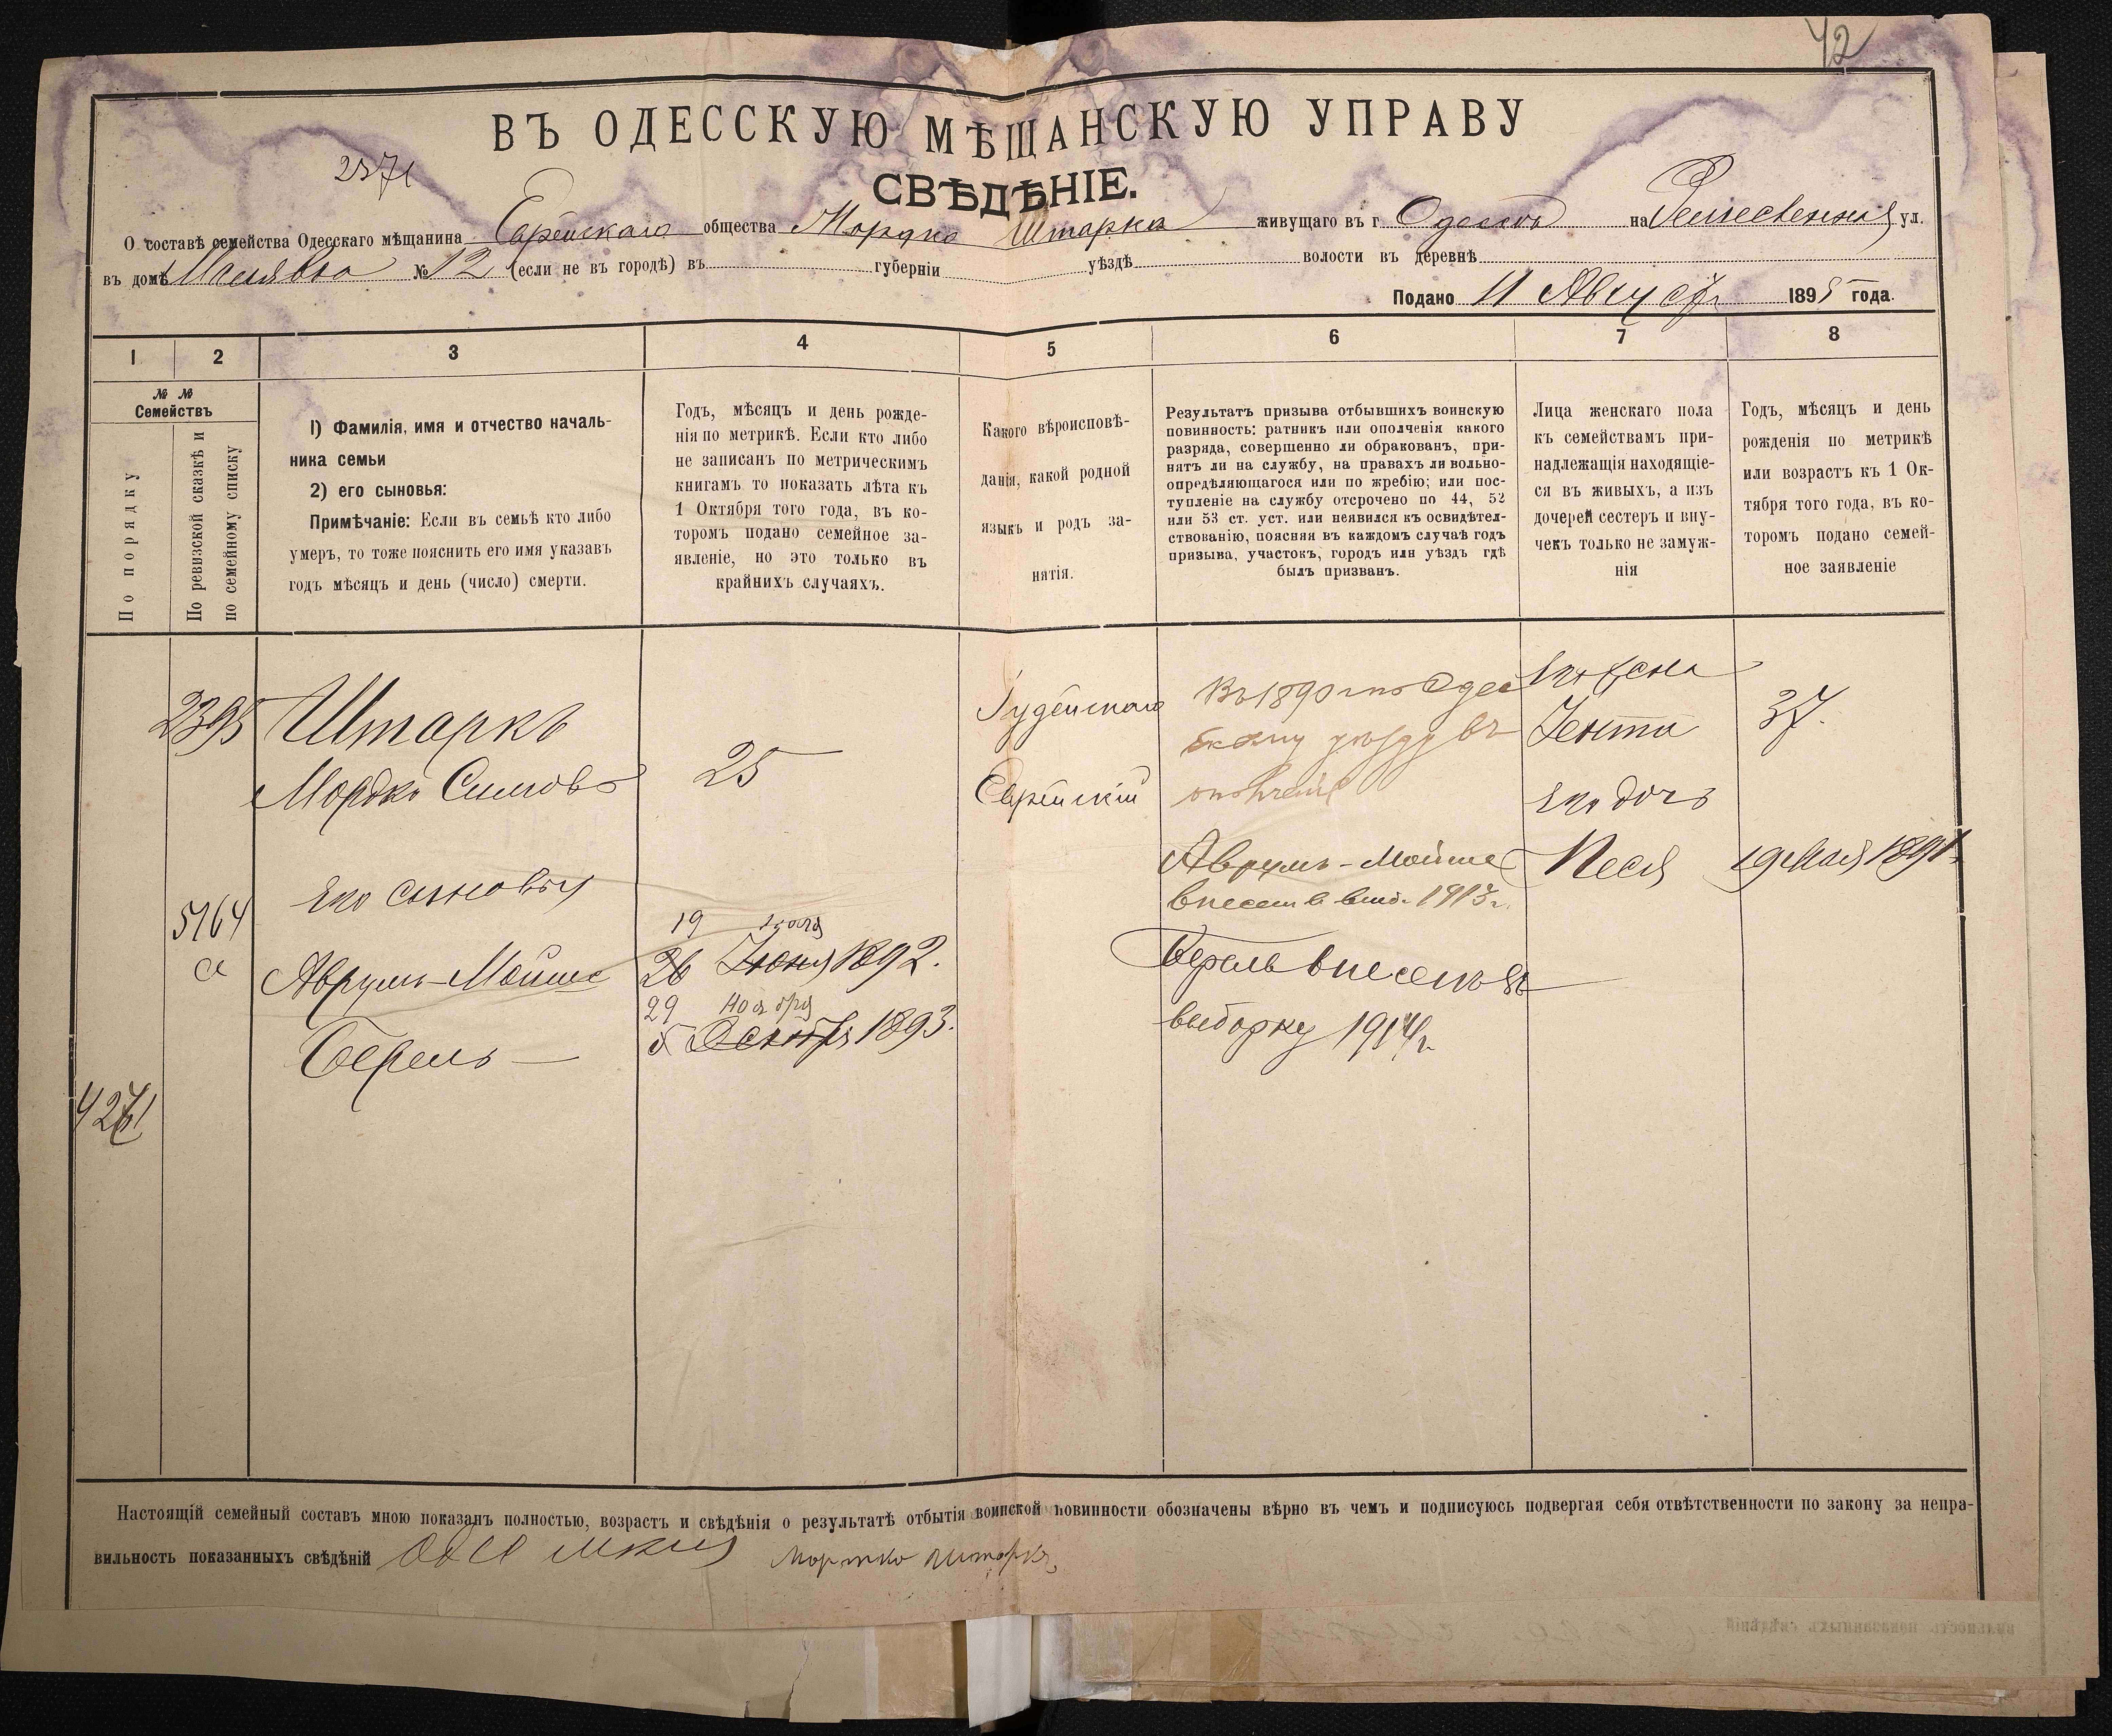 42
ВЪ ОДЕССКУЮ МѢЩАНСКУЮ УПРАВУ
2371
СВѢДѢНІЕ.
О составѣ семейства Одесскаго мѣщанина Еврейскаго общества Мордко Штарка живущаго въ г. Одессѣ на Ремесленная ул.
въ домѣ № 12 (если не въ городѣ) въ губерніи уѣздѣ волости въ деревнѣ
Подано 11 Августа 1895 года.
1 2 3 4 5 6 7 8
№ №
Семействъ
По порядку
По ревизской сказкѣ и
по семейному списку
1) Фамилія, имя и отчество началь-
ника семьи
2) его сыновья:
Примѣчаніе: Если въ семьѣ кто либо
умеръ, то тоже пояснить его имя указавъ
годъ мѣсяцъ и день (число) смерти.
Годъ, мѣсяцъ и день рожде-
нія по метрикѣ. Если кто либо
не записанъ по метрическимъ
книгамъ то показать лѣта къ
1 Октября того года, въ ко-
торомъ подано семейное за-
явленіе, но это только въ
крайнихъ случаяхъ.
Какого вѣроисповѣ-
данія, какой родной
языкъ и родъ за-
нятія.
Результатъ призыва отбывшихъ воинскую
повинность: ратникъ или ополченія какого
разряда, совершенно ли обракованъ, при-
нятъ ли на службу, на правахъ ли вольно-
опредѣляющагося или по жребію; или пос-
тупленіе на службу отсрочено по 44, 52
или 53 ст. уст. или неявился къ освидѣтел-
ствованію, поясняя въ каждомъ случаѣ годъ
призыва, участокъ, городъ или уѣздъ гдѣ
былъ призванъ.
Лица женскаго пола
къ семействамъ при-
надлежащія находящіе-
ся въ живыхъ, а изъ
дочерей сестеръ и вну-
чекъ только не замуж-
нія
Годъ, мѣсяцъ и день
рожденія по метрикѣ
или возрастъ къ 1 Ок-
тября того года, въ ко-
торомъ подано семей-
ное заявленіе
2395 Штаркъ
Мордко Симовъ
25
Іудейскаго
Еврейскій
Въ 1890 г по Одес
скому уѣзду въ
ополченіе
Его жена
Іента
37.
Его дочь
Песя 19 Мая 1891
Его сыновья
5164
а
Аврумъ-Мойше
19 Іюля
26 Іюня 1892.
Берель
29 Ноября
8 Декабря 1893.
Аврумъ-Мойше
внесен в выб. 1913 г.
Берель внесенъ въ
выборку 1914 г.
4271
Настоящій семейный составъ мною показанъ полностью, возрастъ и свѣдѣнія о результатѣ отбытія воинской повинности обозначены вѣрно въ чемъ и подписуюсь подвергая себя отвѣтственности по закону за непра-
вильность показанныхъ свѣдѣній Мортко Штаркъ
вильность показанныхъ свѣдѣній